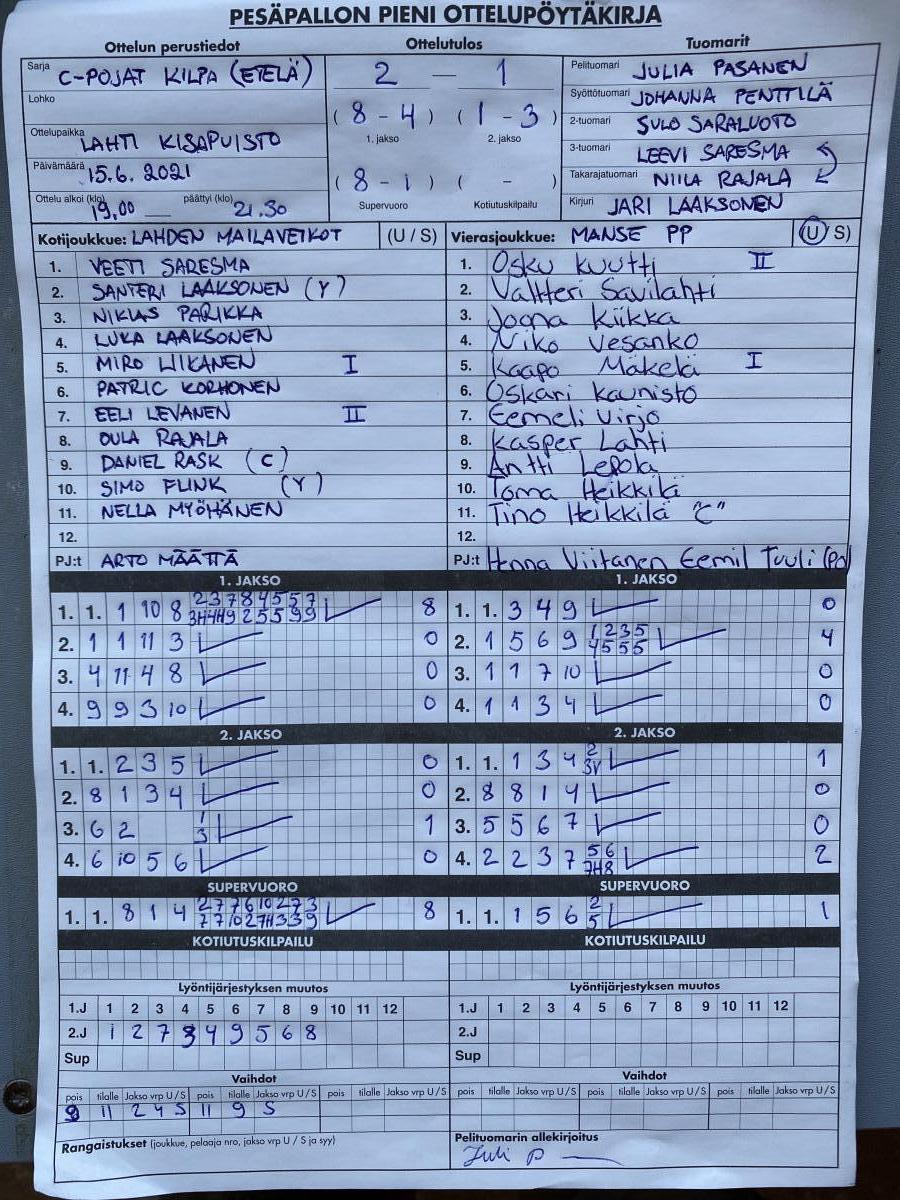 PESÄPALLON PIENI OTTELUPÖYTÄKIRJA
Ottelun perustiedot
Sarja C-POJAT KILPA (ETELÄ)
Lohko
Ottelupaikka LAHTI KISAPUISTO
Päivämäärä 15.6. 2021
Ottelu alkoi (klo) 19,00 päättyi (klo) 21.30
Ottelutulos
2 — 1
( 8 - 4 ) ( 1 - 3 )
1. jakso 2. jakso
( 8 - 1 ) ( - )
Supervuoro Kotiutuskilpailu
Tuomarit
Pelituomari JULIA PASANEN
Syöttötuomari JOHANNA PENTTILÄ
2-tuomari SULO SARALUOTO
3-tuomari LEEVI SARESMA
Takarajatuomari NIILA RAJALA
Kirjuri JARI LAAKSONEN
Kotijoukkue: LAHDEN MAILAVEIKOT (U / S)
1. VEETI SARESMA
2. SANTERI LAAKSONEN (Y)
3. NIKLAS PARIKKA
4. LUKA LAAKSONEN
5. MIRO LIIKANEN I
6. PATRIC KORHONEN
7. EELI LEVANEN II
8. OULA RAJALA
9. DANIEL RASK (C)
10. SIMO FLINK (Y)
11. NELLA MYÖHÄNEN
12.
PJ:t ARTO MÄÄTTÄ
Vierasjoukkue: MANSE PP (U / S)
1. Osku Kuutti II
2. Valtteri Savilahti
3. Joona Kiikka
4. Niko Vesanko
5. Kaapo Mäkelä I
6. Oskari Kaunisto
7. Eemeli Virjo
8. Kasper Lahti
9. Antti Lepola
10. Toma Heikkilä
11. Tino Heikkilä "C"
12.
PJ:t Henna Viitanen Eemil Tuuli (PJ)
1. JAKSO
1. 1. 1 10 8 2 3 7 8 4 5 5 7 8
2. 1 1 11 3 0
3. 4 11 4 8 0
4. 9 9 3 10 0
1. JAKSO
1. 1. 3 4 9 0
2. 1 5 6 9 1 2 3 5 4
4 5 5 5
3. 1 1 7 10 0
4. 1 1 3 4 0
2. JAKSO
1. 1. 2 3 5 0
2. 8 1 3 4 0
3. 6 2 1 1
3
4. 6 10 5 6 0
2. JAKSO
1. 1. 1 3 4 2 1
3V
2. 8 8 1 4 0
3. 5 5 6 7 0
4. 2 2 3 7 5 6 2
7H8
SUPERVUORO
1. 1. 8 1 4 2 7 7 6 10 2 7 3 8
SUPERVUORO
1. 1. 1 5 6 2 1
5
KOTIUTUSKILPAILU
KOTIUTUSKILPAILU
Lyöntijärjestyksen muutos
1.J 1 2 3 4 5 6 7 8 9 10 11 12
2.J 1 2 7 3 4 9 5 6 8
Sup
Lyöntijärjestyksen muutos
1.J 1 2 3 4 5 6 7 8 9 10 11 12
2.J
Sup
Vaihdot
pois tilalle Jakso vrp U / S pois tilalle Jakso vrp U / S pois tilalle Jakso vrp U / S
9 11 2 4 S 11 9 S
Vaihdot
pois tilalle Jakso vrp U / S pois tilalle Jakso vrp U / S pois tilalle Jakso vrp U / S
Rangaistukset (joukkue, pelaaja nro, jakso vrp U / S ja syy)
Pelituomarin allekirjoitus
Juli P